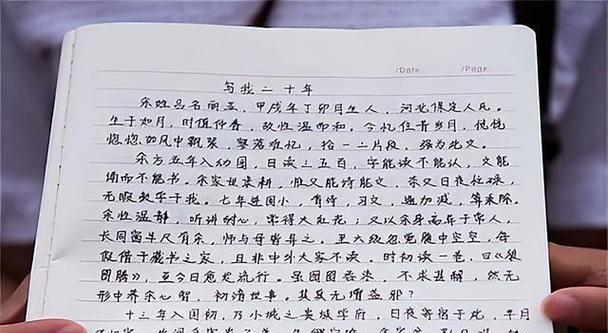 /Date /Page
写我二十年
余姓吕名丽孟，甲戌年丁卯月生人，河北保定人氏。
生于如月，时值仲春，故性温而和。今忆往昔岁月，恍恍
惚惚如风中飘絮，繁落难忆，拾一二片段，强为此文。
余方五年入幼园，日读三五百，字能读不能认，文能
诵而不能书。余家世农耕，惟父能诗能文，奈父日夜忙碌，
无暇教字于我。七年进国小，有诗，习文，遇加减，算乘除。
余性温静，听讲耐心，常得大红花；又以余身高异于常人，
长同窗半尺有余，师与母皆异之。至六级忽觉腹中空空，每
假借于藏书之家，且非中外大家不读。时初读一卷，曰《彼
图腾》，至今日愈发流行。虽囫囵吞枣，不求甚解，然无
形中养余心智，初涉世事。其又无憾益邪？
十三年入国初，乃小城之贵族学府，日夜寄宿于此，半月